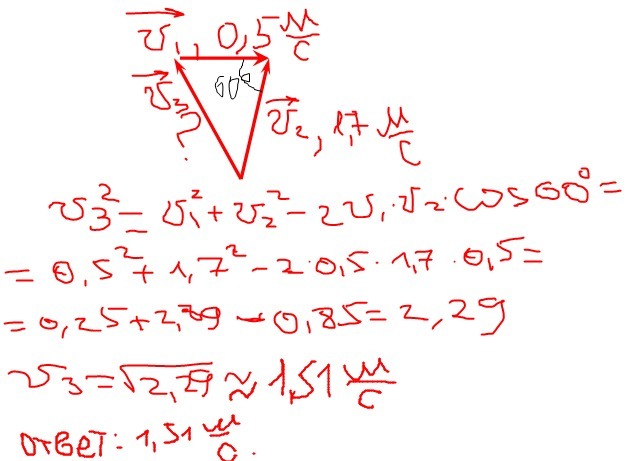 v⃗₁, 0,5 м/с
60°
v⃗₃ ?
v⃗₂, 1,7 м/с
v₃² = v₁² + v₂² - 2v₁·v₂·cos60° =
= 0,5² + 1,7² - 2·0,5·1,7·0,5 =
= 0,25 + 2,89 - 0,85 = 2,29
v₃ = √2,29 ≈ 1,51 м/с
ответ: 1,51 м/с.